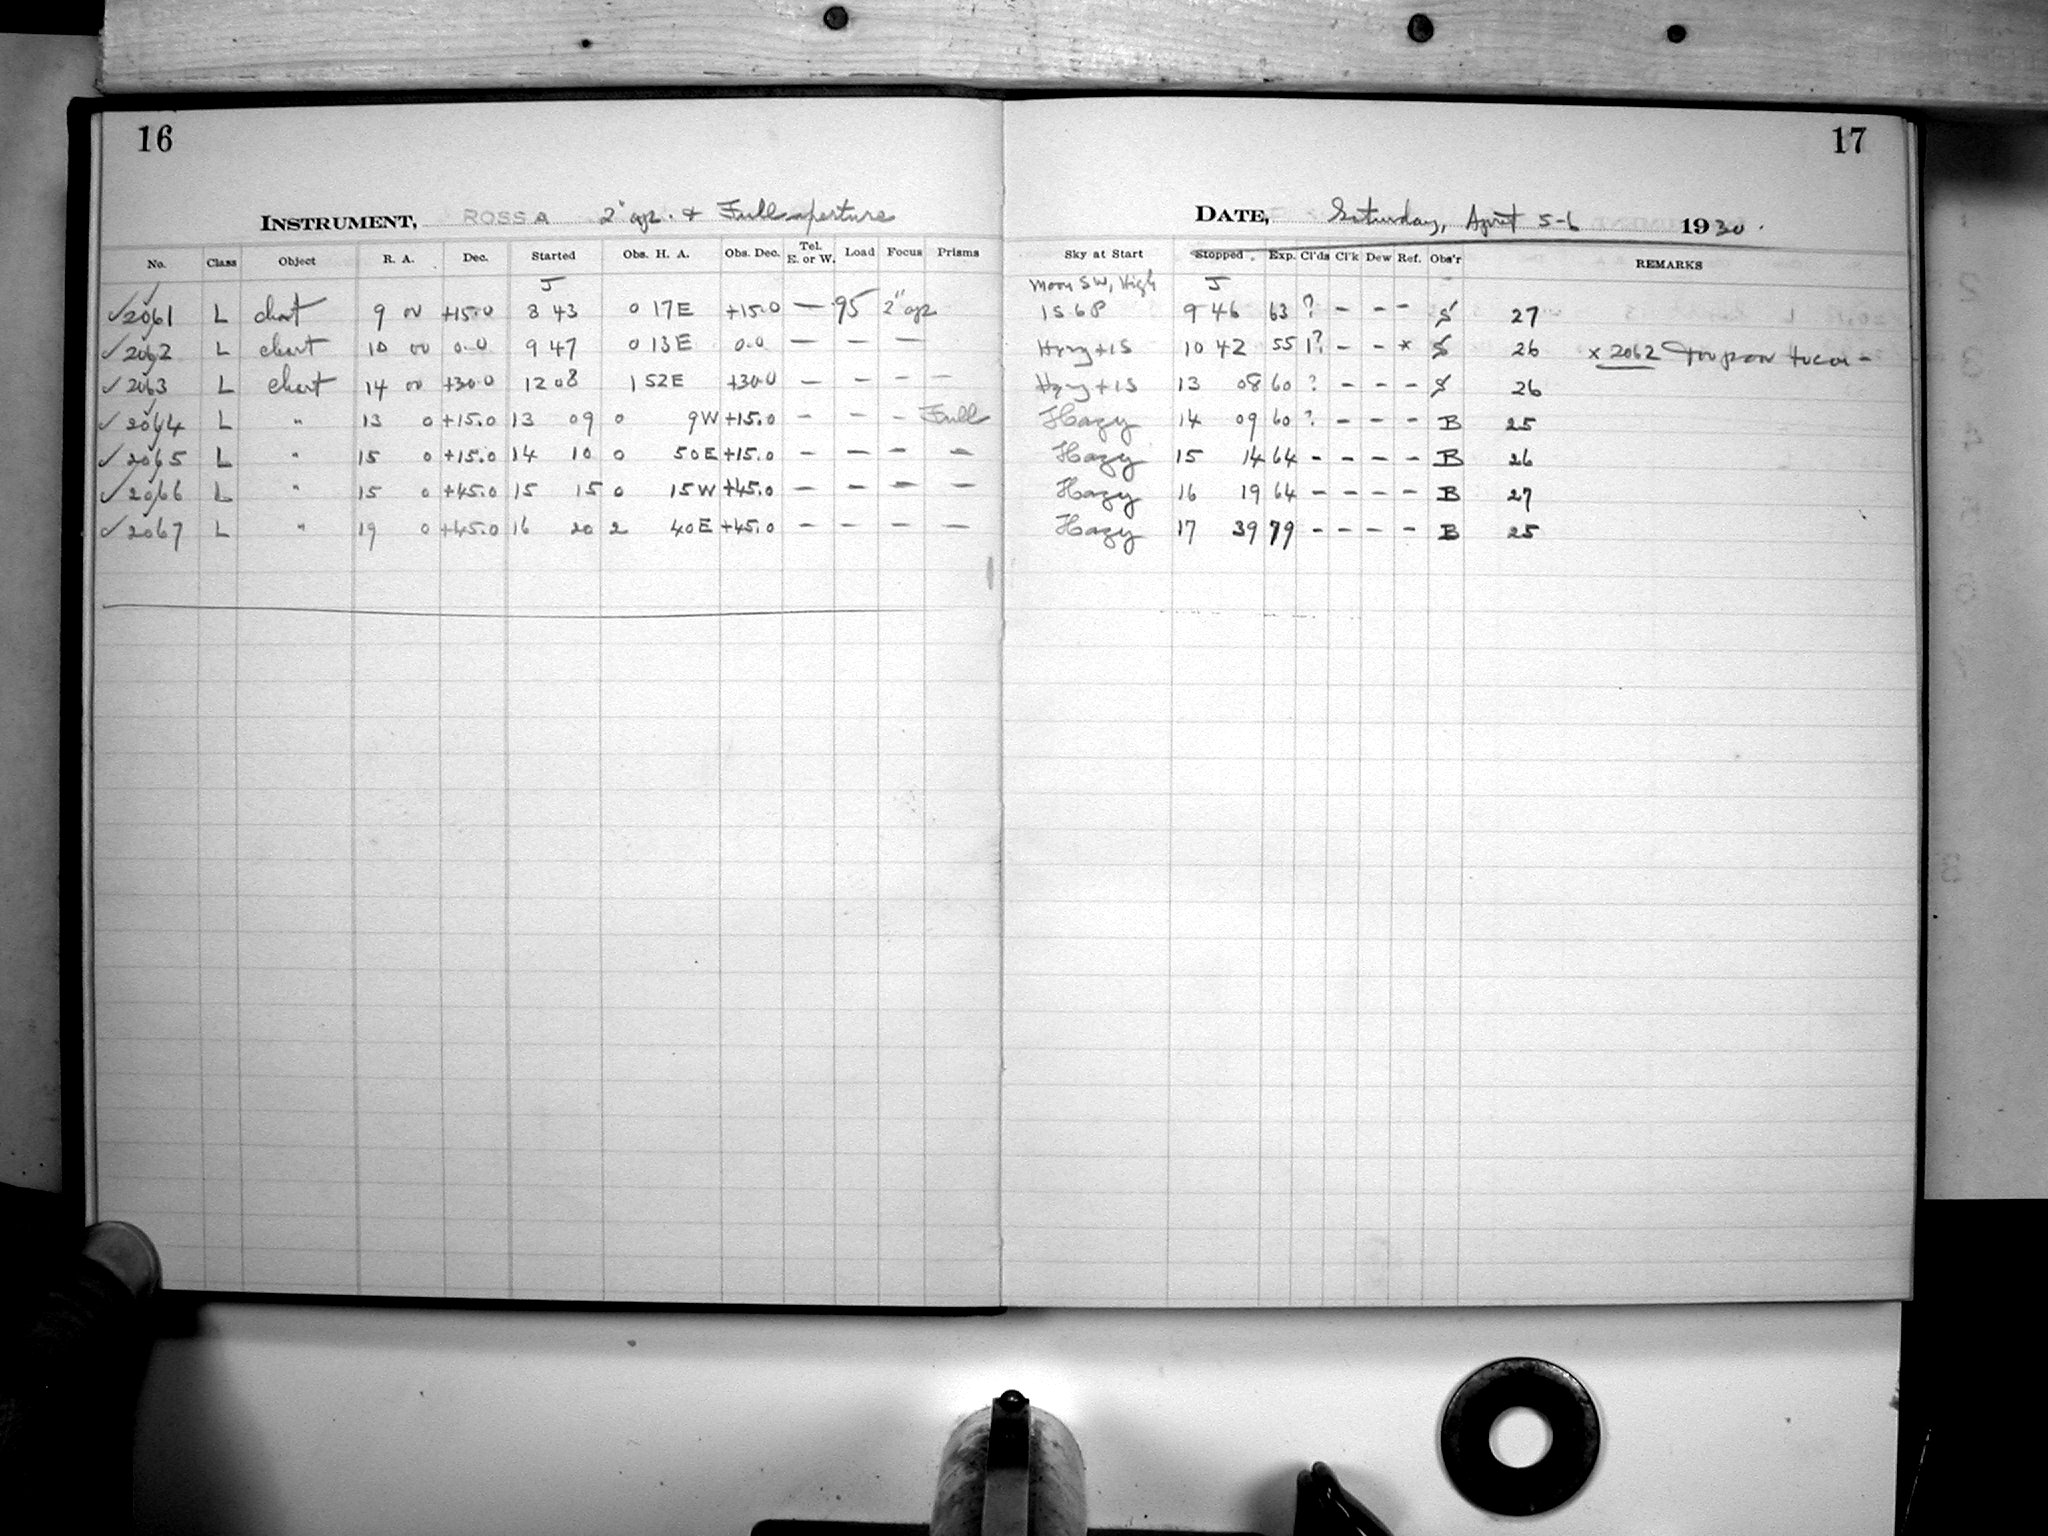 16
INSTRUMENT, ROSS A 2" ap. & Full aperture
No. Class Object R. A. Dec. Started Obs. H. A. Obs. Dec. Tel. E. or W. Load Focus Prisms
J
✓2061 L chart 9 00 +15.0 8 43 0 17E +15.0 — 95 2" ap
✓2062 L chart 10 00 0.0 9 47 0 13E 0.0 — — —
✓2063 L chart 14 00 +30.0 12 08 1 52E +30.0 — — — —
✓2064 L " 13 0 +15.0 13 09 0 9W +15.0 - - - Full
✓2065 L " 15 0 +15.0 14 10 0 50E +15.0 - - - -
✓2066 L " 15 0 +45.0 15 15 0 15W +45.0 - - - -
✓2067 L " 19 0 +45.0 16 20 2 40E +45.0 - - - -
17
DATE, Saturday, April 5-6 1930.
Sky at Start Stopped Exp. Cl'ds Cl'k Dew Ref. Obs'r REMARKS
Moon SW, High J
1S 6P 9 46 63 ? - - - S 27
Hazy + 1S 10 42 55 1? - - * S 26 x 2062
Hazy + 1S 13 08 60 ? - - - S 26
Hazy 14 09 60 ? - - - B 25
Hazy 15 14 64 - - - - B 26
Hazy 16 19 64 - - - - B 27
Hazy 17 39 79 - - - - B 25